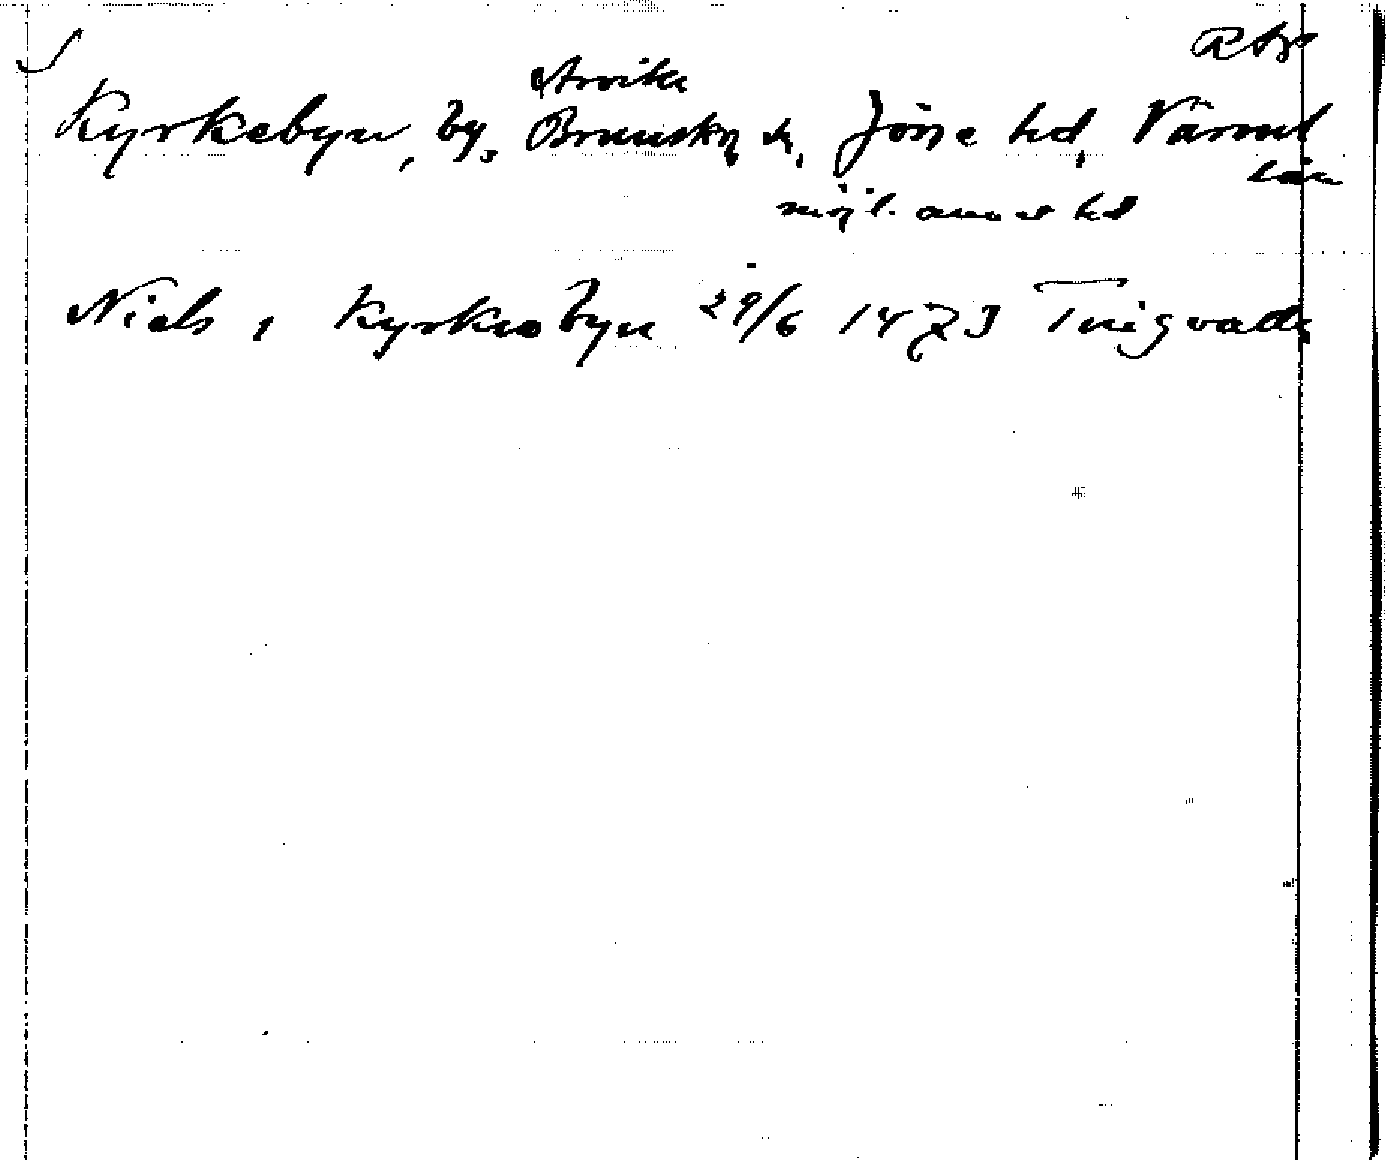 Arvika
Kyrkebyn, by, Brunskog sn, Jösse hd, Värml
län
möjl. annat hd
Niels i Kyrkiobyn 29/6 1473 Tingvalla